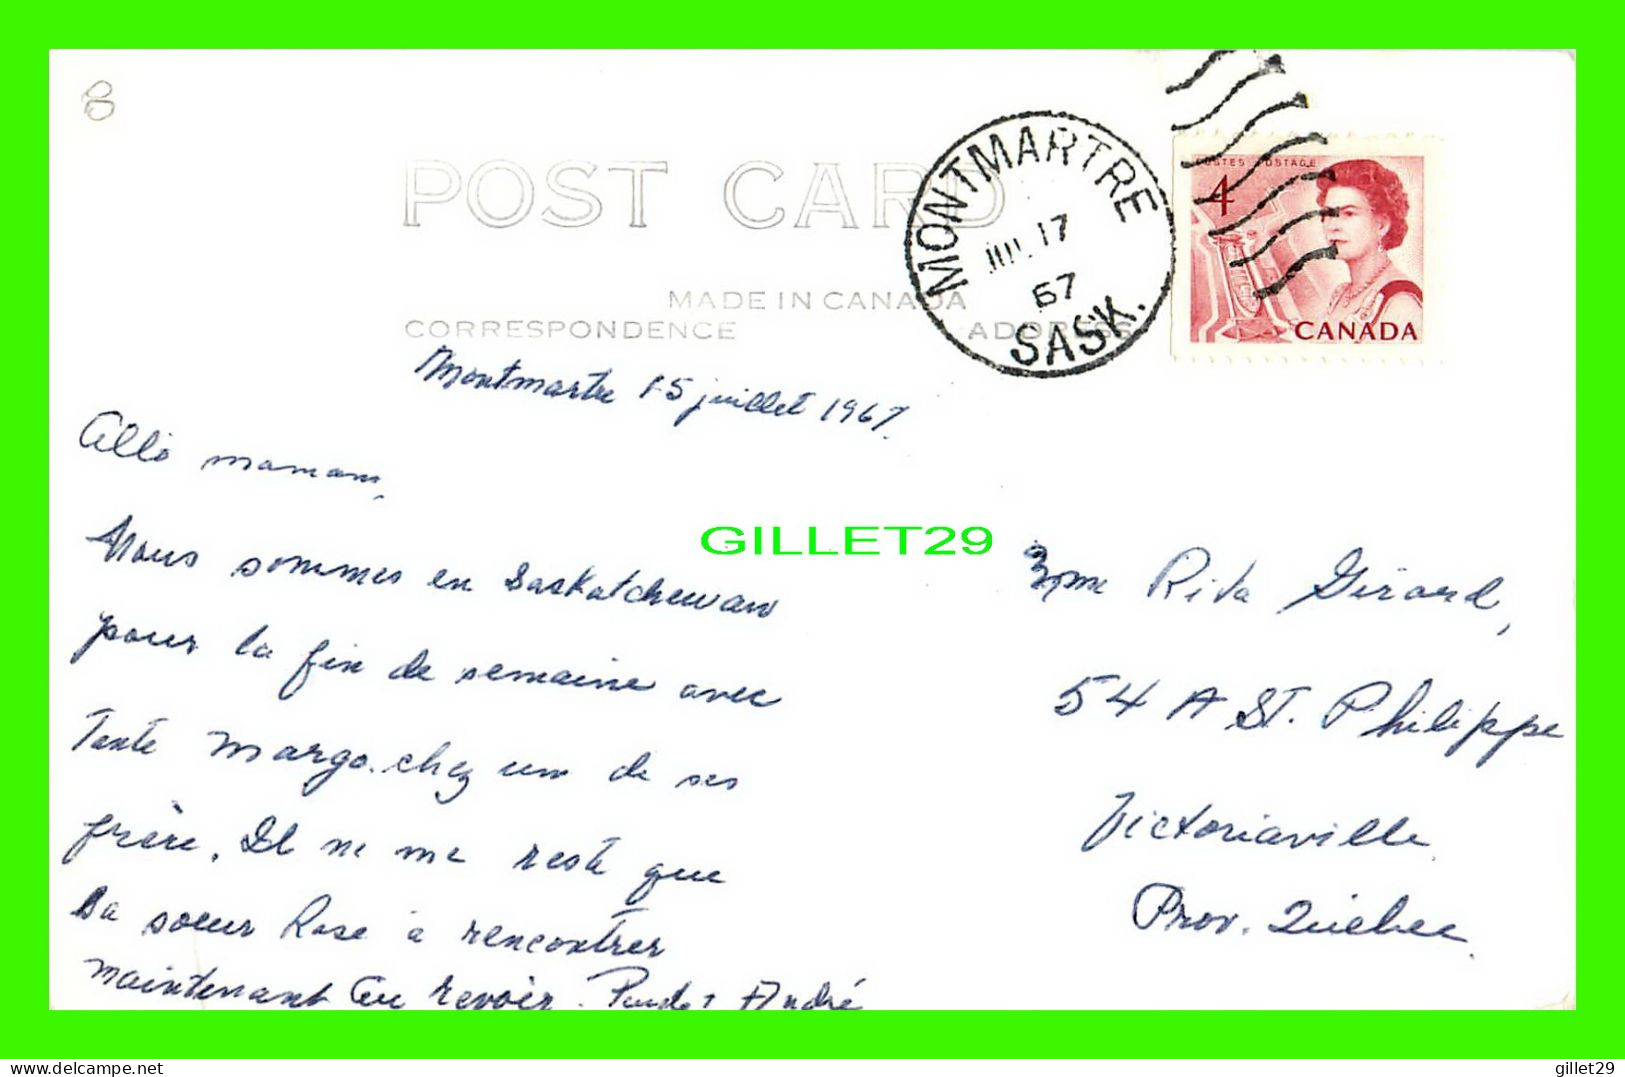 8
POST CARD
MADE IN CANADA
CORRESPONDENCE
ADDRESS
MONTMARTRE
JUL 17
67
SASK.
POSTES POSTAGE
4
CANADA
Montmartre 15 juillet 1967.
Allô maman,
Nous sommes en Saskatchewan
pour la fin de semaine avec
Tante Margo. chez un de ses
frère. Il ne me reste que
Sa soeur Rose à rencontrer
maintenant Au revoir. André
GILLET29
Mme Rita Girard,
54 A St. Philippe
Victoriaville
Prov. Québec
gillet29